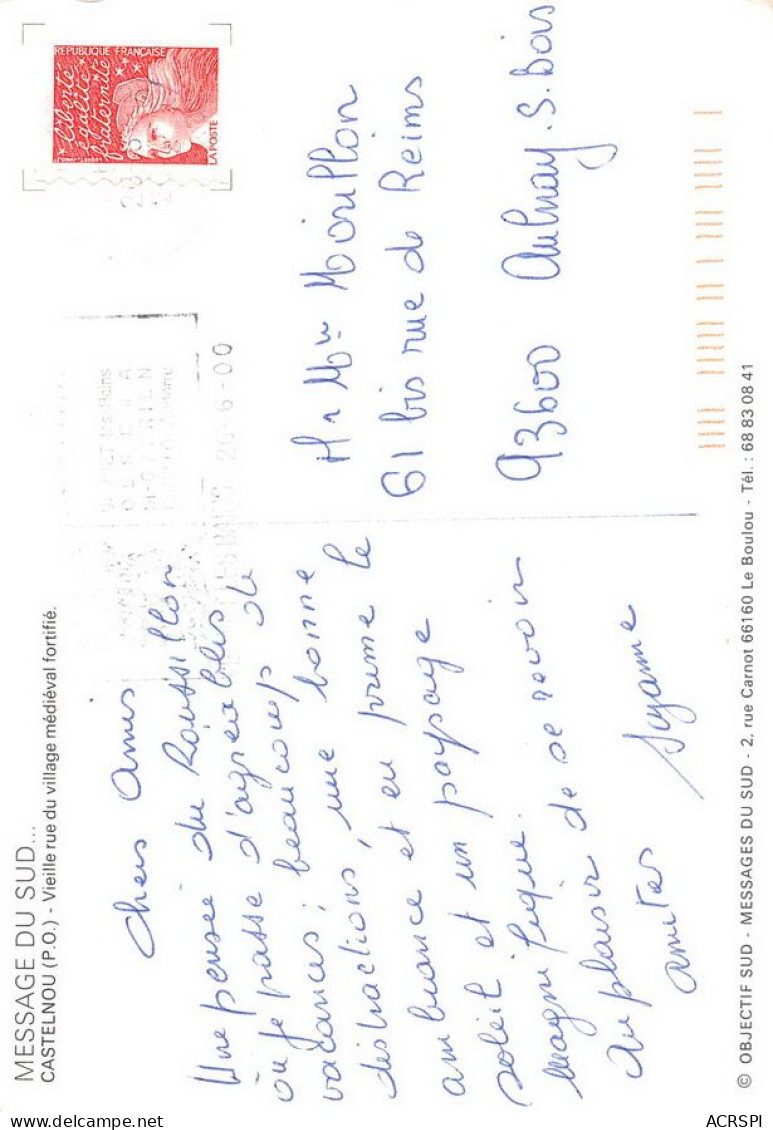 MESSAGE DU SUD...
CASTELNOU (P.O.) - Vieille rue du village médiéval fortifié.
Chers Amis
Une pensée du Roussillon
où je passe d'agréables
vacances ; beaucoup de
distractions, une bonne
ambiance et en prime le
soleil et un paysage
magnifique.
Au plaisir de se revoir
Amities Suzanne
REPUBLIQUE FRANÇAISE
liberté
égalité
fraternité
LA POSTE
26-6-00
M & Mme Mouillon
61 bis rue de Reims
93600 Aulnay.S.Bois
© OBJECTIF SUD - MESSAGES DU SUD - 2, rue Carnot 66160 Le Boulou - Tél. : 68 83 08 41
delcampe.net
ACRSPI